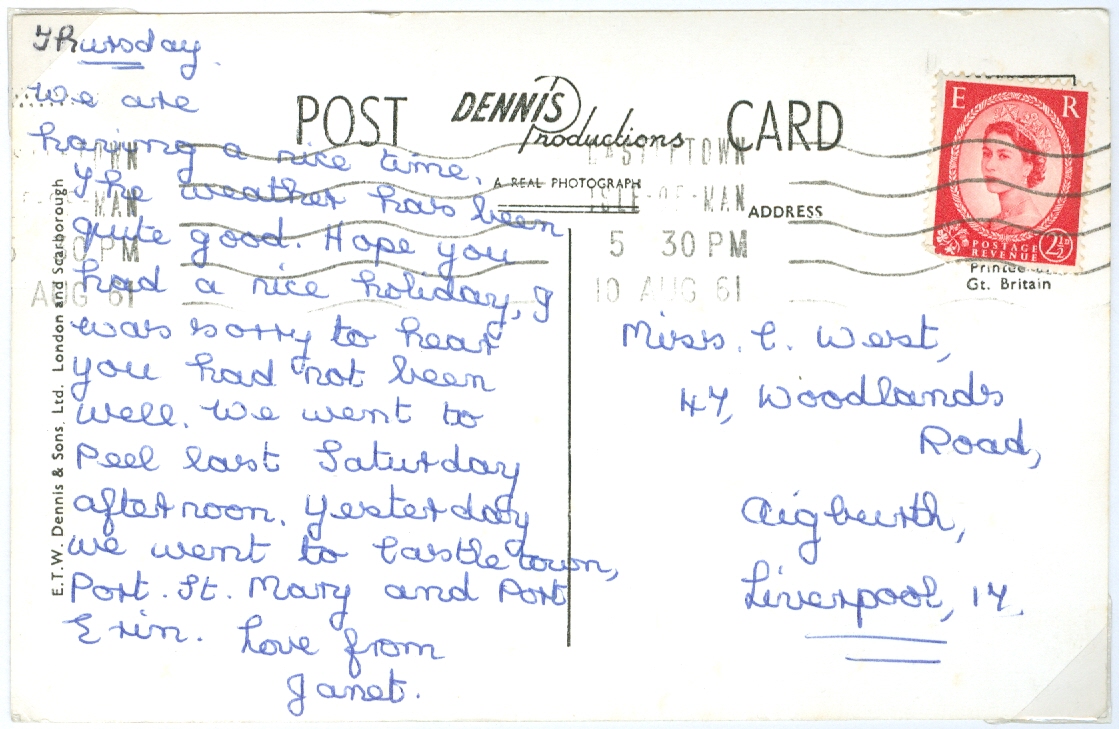 Thursday.
We are
having a nice time.
The weather has been
quite good. Hope you
had a nice holiday, I
was sorry to hear
you had not been
well. We went to
Peel last Saturday
afternoon. Yesterday
we went to Castletown,
Port. St. Mary and Port
Erin. Love from
Janet.
POST CARD
DENNIS
Productions
A REAL PHOTOGRAPH
ADDRESS
E.T.W. Dennis & Sons, Ltd. London and Scarborough
ISLE-OF-MAN
5 30 PM
10 AUG 61
MAN
PM
AUG 61
E R
POSTAGE
REVENUE
2½D
Printed
Gt. Britain
Miss. C. West,
47, Woodlands
Road,
Aigburth,
Liverpool, 17.